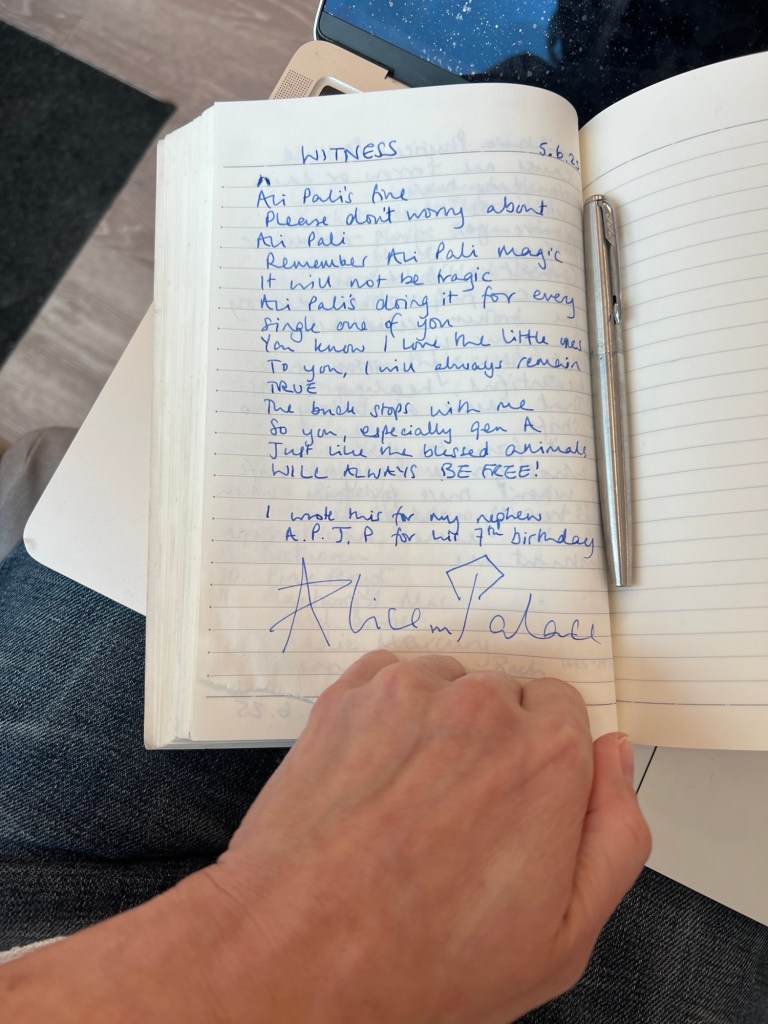 WITNESS 5.6.25
Ali Pali's fine
Please don't worry about
Ali Pali
Remember Ali Pali magic
It will not be tragic
Ali Pali's doing it for every
single one of you
You know I love the little ones
To you, I will always remain
TRUE
The buck stops with me
So you, especially gen A
Just like the blessed animals
WILL ALWAYS BE FREE!
I wrote this for my nephew
A.P.J.P for his 7th birthday
Alice m Palace